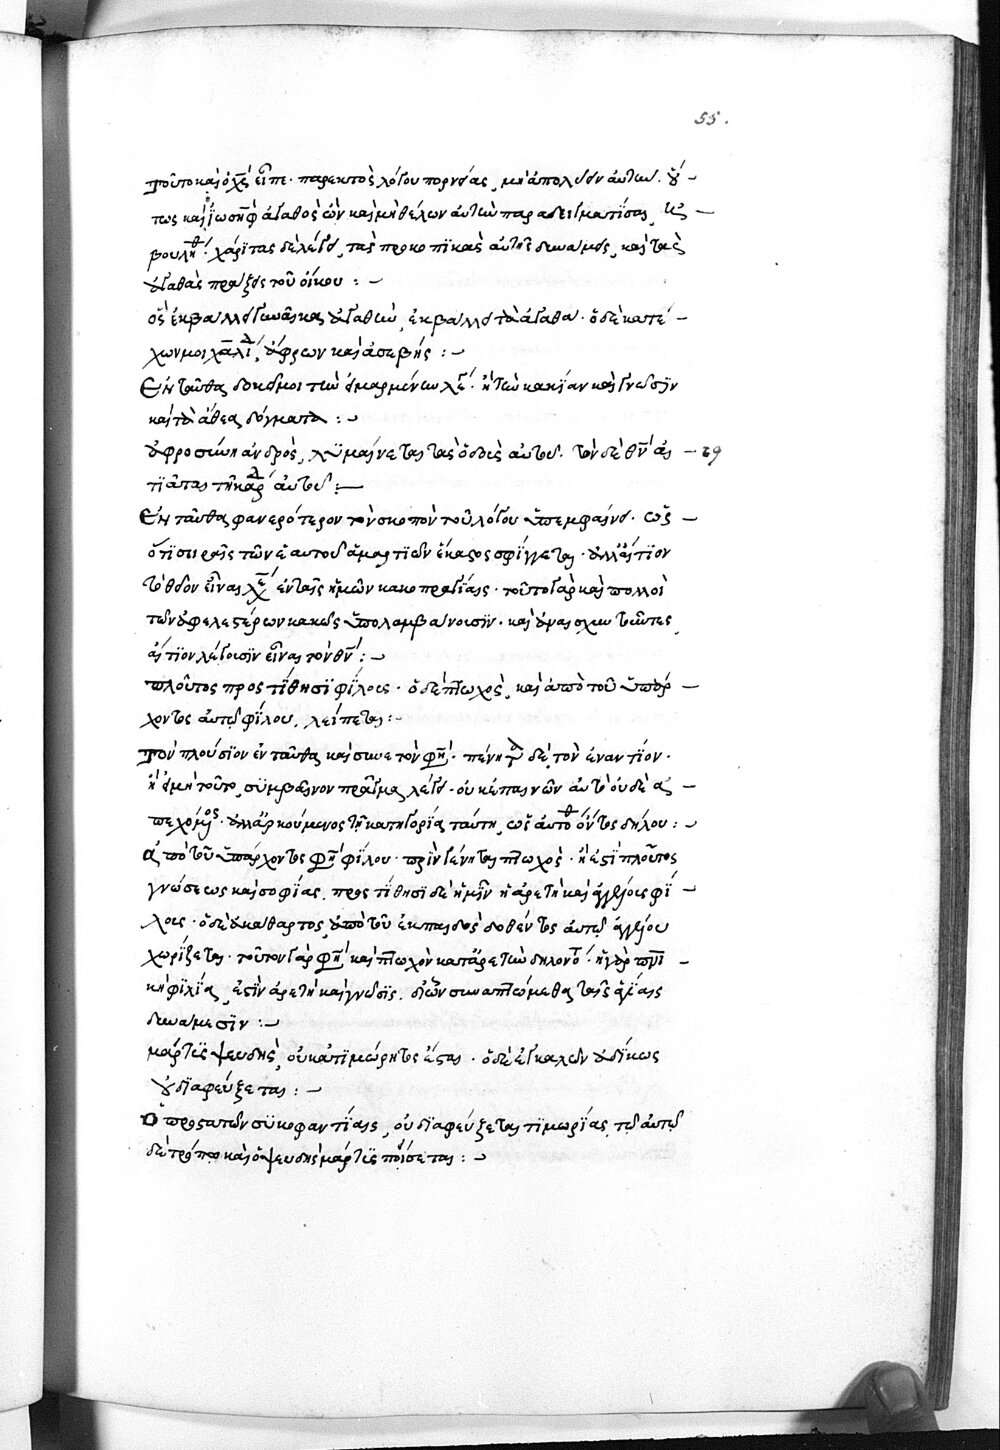 55.
τοῦτο καὶ ὁ χς εἶπε· παρεκτὸς λόγου πορνείας, μὴ ἀπολύειν αὐτήν. οὕ
τως καὶ ἰωσὴφ ἀγαθὸς ὢν καὶ μὴ θέλων αὐτὴν παραδειγματίσαι,
βουλήθ. χάριτας δὲ λέγει, τὰς προκοπικὰς αὐτῆς δυνάμεις, καὶ τὰς
ἀγαθὰς πράξεις τοῦ οἴκου :
ὃς ἐκβάλλει γυναῖκα ἀγαθὴν, ἐκβάλλει τὰ ἀγαθά· ὁ δὲ κατέ
χων μοιχαλίδ, ἄφρων καὶ ἀσεβής :
Ενταῦθα δοκεῖ μοι τὴν εἱμαρμένην λέγ· ἢ τὴν κακίαν καὶ γνῶσιν
καὶ τὰ ἄθεα δόγματα :
ἀφροσύνη ἀνδρὸς, λυμαίνεται τὰς ὁδοὺς αὐτοῦ. τὸν δὲ θν αἰ 29
τιᾶται τῆ καρδ αὐτοῦ :
Ενταῦθα φανερότερον τὸν σκοπὸν τοῦ λόγου ὑπεμφαίνει. ὡς
ὅτι σειραῖς τῶν ἑαυτοῦ ἁμαρτιῶν ἕκαστος σφίγγεται· ἀλλ' αἴτιον
τὸ θεῖον εἶναι λέγει ἐν ταῖς ἡμῶν κακοπραγίαις. τοῦτο γὰρ καὶ πολλοὶ
τῶν ἀφελεστέρων κακῶς ὑπολαμβάνουσιν. καὶ ἀναισχυντοῦντες,
αἴτιον λέγουσιν εἶναι τὸν θν :
πλοῦτος προστίθησι φίλους· ὁ δὲ πτωχὸς, καὶ ἀπὸ τοῦ ὑπάρ
χοντος αὐτῶ φίλου, λείπεται :
Τὸν πλούσιον ἐνταῦθα καὶ συνετὸν φη. πένητ δὲ, τὸν ἐναντίον.
ἢ εἰ μὴ τοῦτο, συμβαῖνον πρᾶγμα λέγει· οὐκ ἐπαινῶν αὐτὸ οὐδὲ ἀ
πεχόμενος. ἀλλ' ἀρκούμενος τῆ κατηγορία ταύτη, ὡς αὐτόθ ὄντος δήλου :
ἀπὸ τοῦ ὑπάρχοντος φη φίλου. πρὶν γένηται πτωχὸς. ἢ ἐπεὶ πλοῦτος
γνώσεως καὶ σοφίας, προστίθησι δὲ ἡμῖν ἡ ἀρετὴ καὶ ἀγγέλους φί
λους. ὁ δὲ ἀκάθαρτος ἀπὸ τοῦ ἐκ παιδὸς δοθέντος αὐτῶ ἀγγέλου
χωρίζεται. τοῦτον γὰρ φη καὶ πτωχὸν κατ' ἀρετὴν δηλονότ. ἡ γὰρ πνι
κὴ φιλία, ἐστὶν ἀρετὴ καὶ γνῶσις, δι' ὧν συναπτώμεθα ταῖς ἁγίαις
δυνάμεσιν :
μάρτυς ψευδὴς, οὐκ ἀτιμώρητος ἔσται. ὁ δὲ ἐγκαλῶν ἀδίκως
οὐ διαφεύξεται :
Ὁ προστατῶν συκοφαντίαις, οὐ διαφεύξεται τιμωρίας, τῶ αὐτῶ
δὲ τρόπω καὶ ὁ ψευδὴς μάρτυς